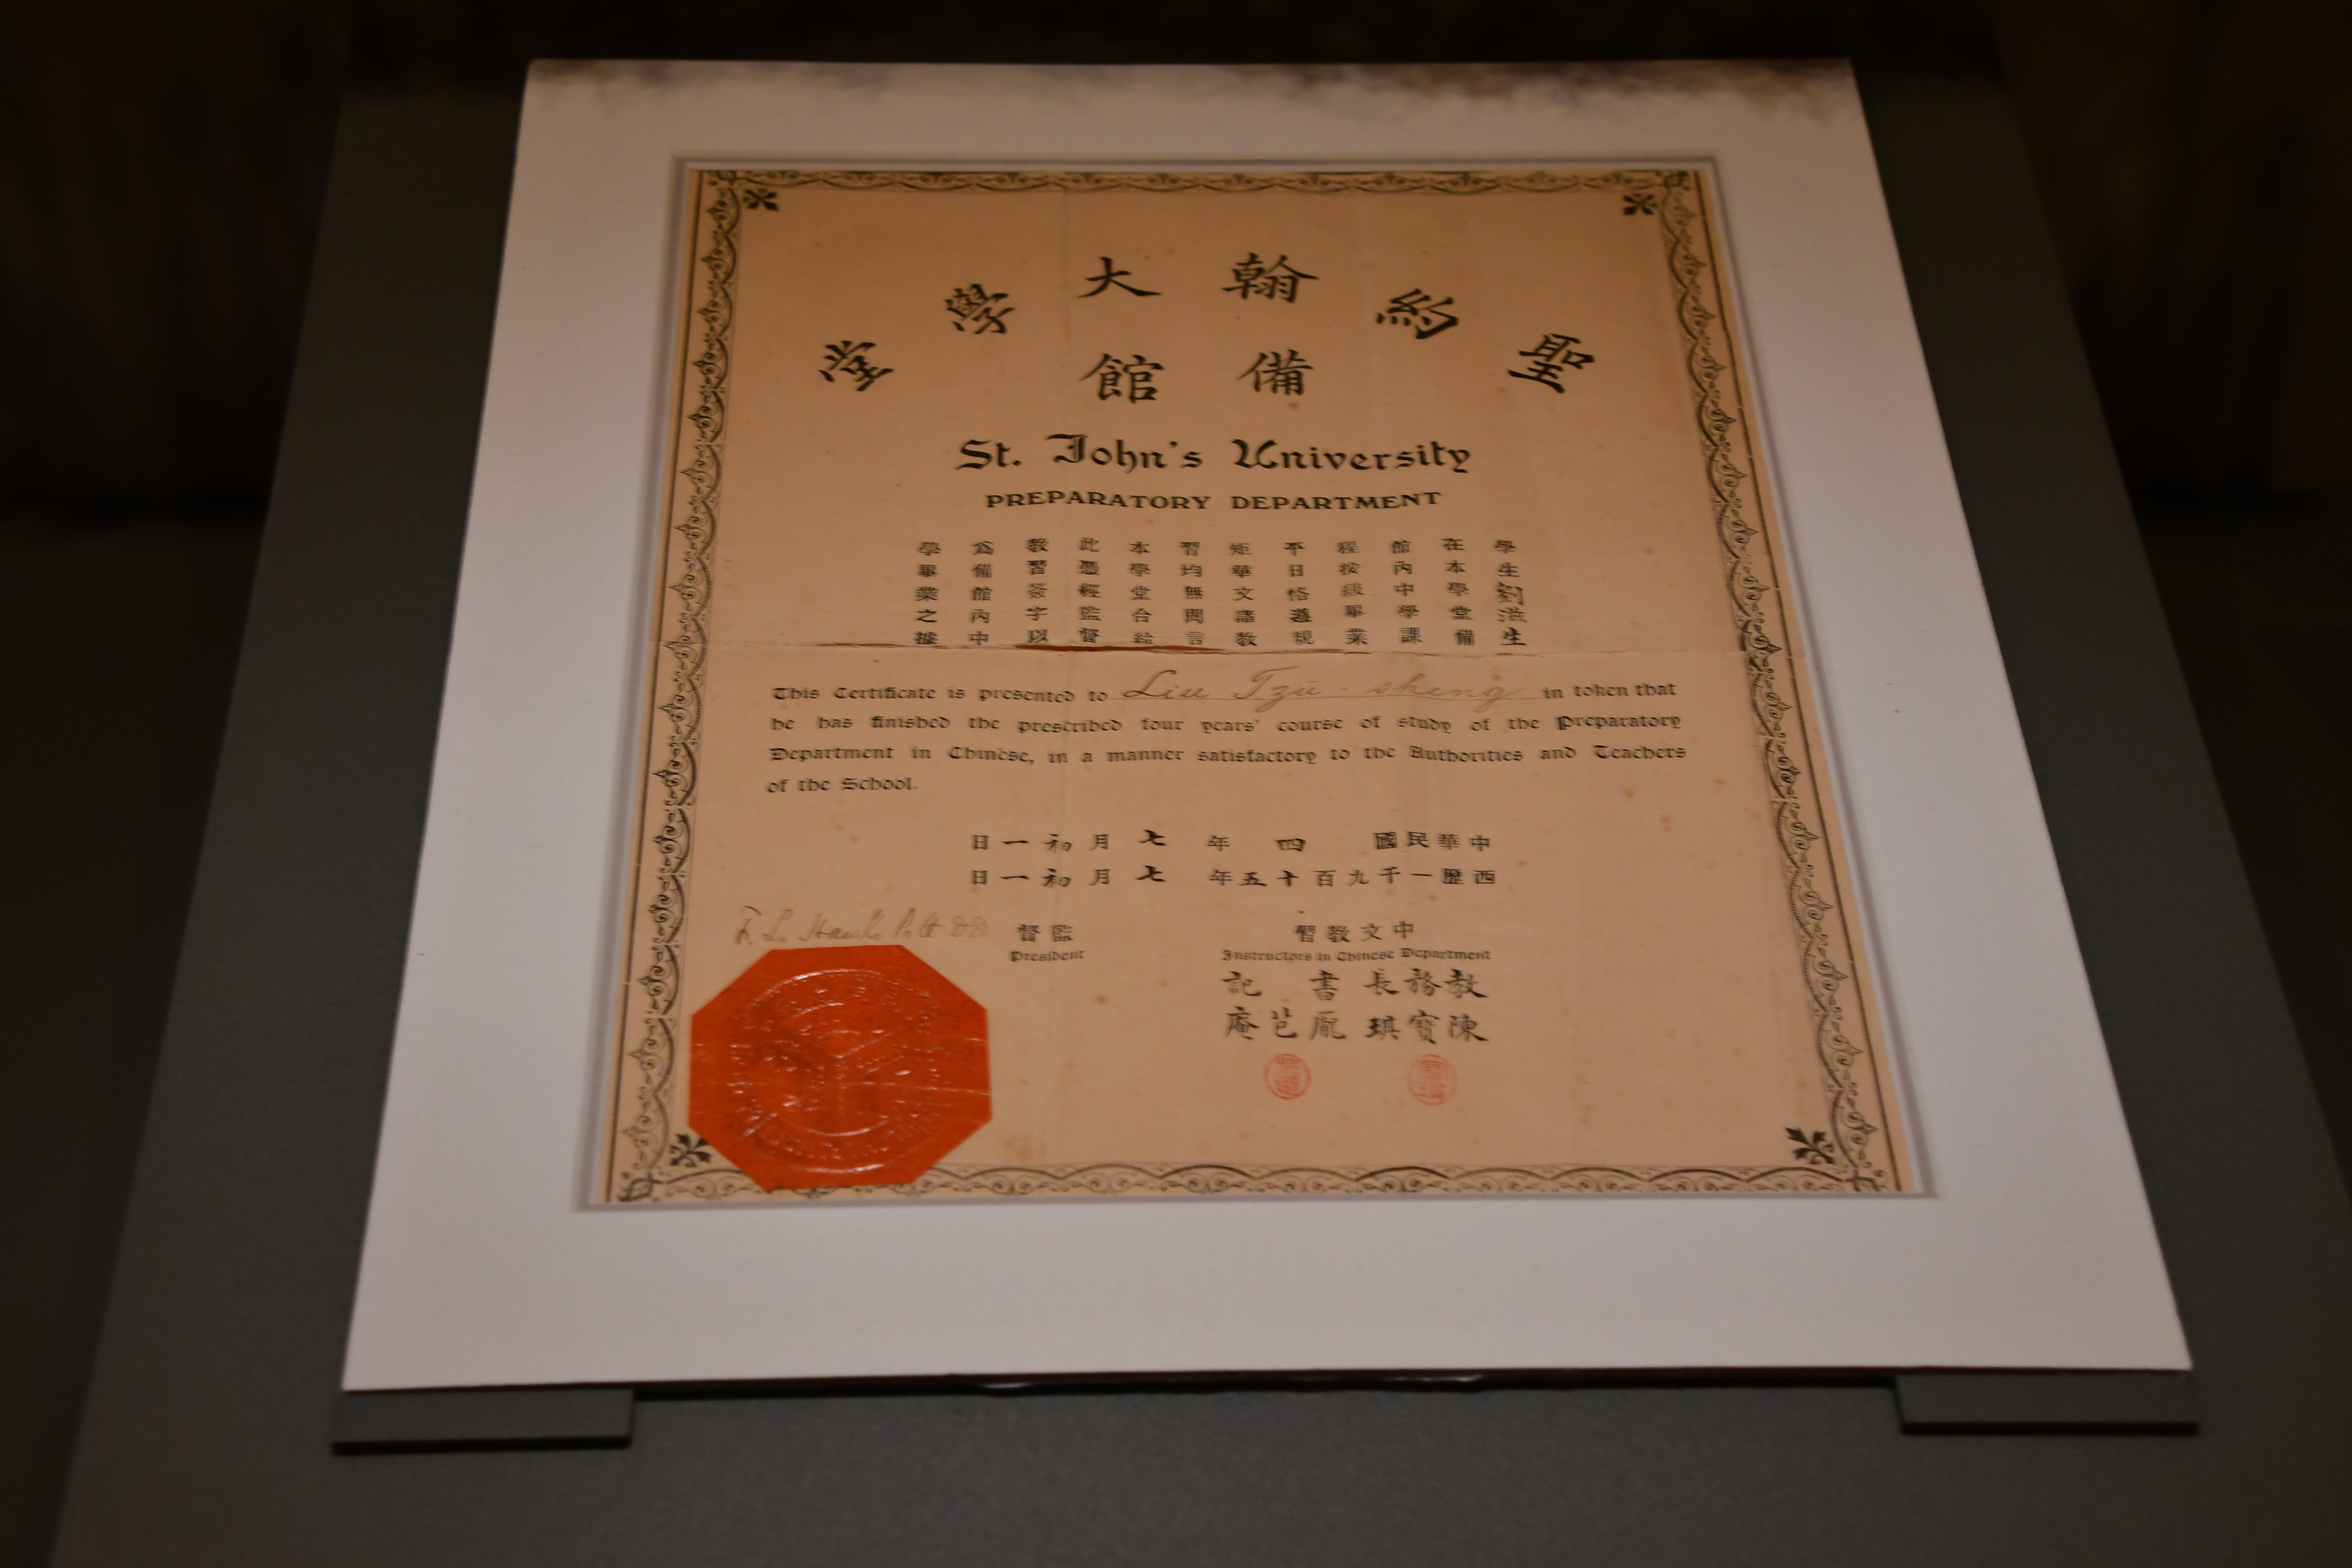 聖約翰大學堂
備館
St. John's University
PREPARATORY DEPARTMENT
學生劉滋生
在本學堂備
館內中學課
程按級畢業
平日恪遵規
矩華文諸教
習均無間言
本學堂合給
此憑經監督
教習簽字以
爲備館內中
學畢業之據
This Certificate is presented to Liu Tzŭ-sheng in token that
he has finished the prescribed four years' course of study of the Preparatory
Department in Chinese, in a manner satisfactory to the Authorities and Teachers
of the School.
中華民國四年七月初一日
西歷一千九百十五年七月初一日
F. L. Hawks Pott DD
監督
President
中文教習
Instructors in Chinese Department
教務長 書記
陳寶琪 龐芑庵